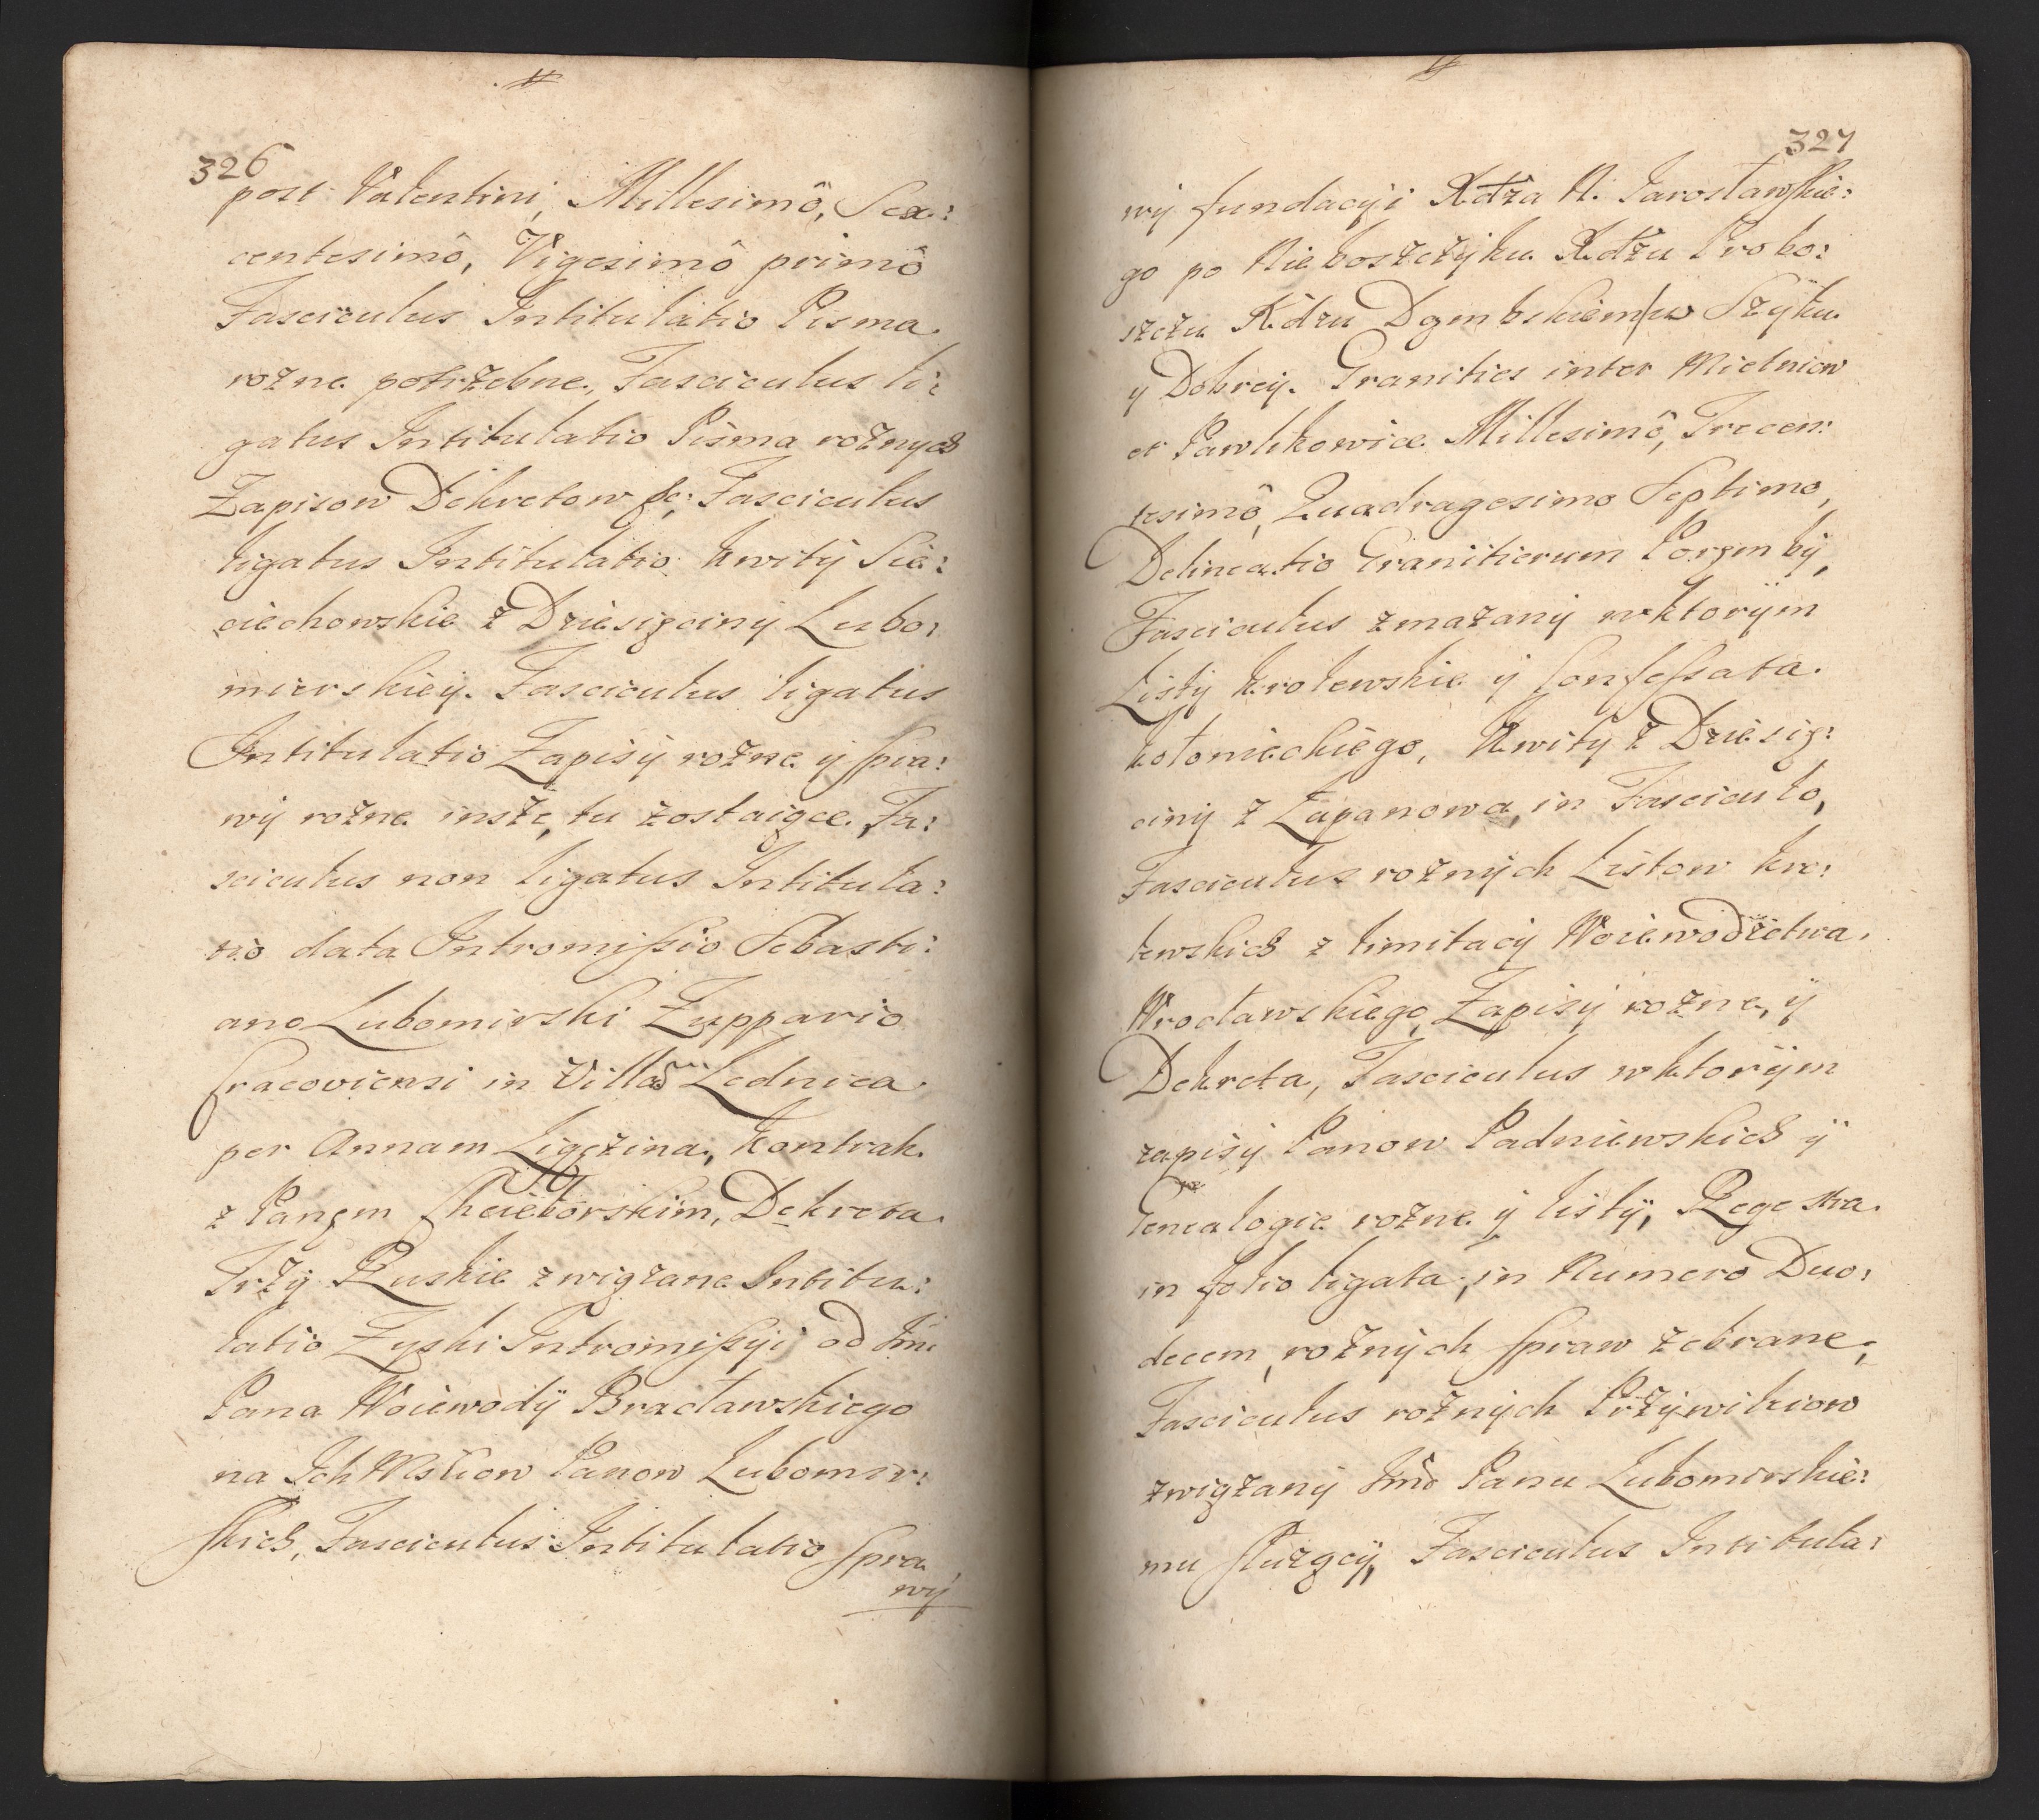 326
post Valentini, Millesimô, Sex:
centesimô, Vigesimô primô
Fasciculus Intitulatio Pisma
rożne potrzebne, Fasciculus li:
gatus Intitulatio Pisma rożnych
Zapisow Dekretow &c: Fasciculus
ligatus Intitulatio kwity Sie:
ciechowskie z Dziesięciny Lubo:
mierskiey. Fasciculus ligatus
Intitulatio Zapisy rożne y spra:
wy rożne insze, tu zostaiące. Fa:
sciculus non ligatus Intitula:
tio data Intromissio Sebasti:
ano Lubomirski Zuppario
Cracoviensi in Villam Lednica
per Annam Ligęzina, Kontrak.
z Panem Chcieborskim, Dekreta
Trzy Ruskie związane Intitu:
latio Zyski Intromissyi od Jmi
Pana Woiewody Bracławskiego
na Ich Mściow Panow Lubomir:
skich, Fasciculus Intitulatio spra
wy
327
wy fundacyi Xdza N. Jarosławskie:
go po Nieboszczyku Xdzu Probo:
szczu Xdzu Dąmbskiem w Szyku
y Dobrey. Granities inter Mietniow
et Pawlikowice Millesimô, Trecen:
tesimô, Quadragesimo Septimo,
Delineatio Granitierum Porąmby,
Fasciculus zmazany wktorym
Listy krolewskie y Confessata
kołonieckiego, kwity z Dziesię:
ciny z Łapanowa, in Fasciculo,
Fasciculus rożnych Listow kro:
lewskich z limitacy Woiewodztwa
Wrocławskiego, Zapisy rożne, y
Dekreta, Fasciculus wktorym
zapisy Panow Padniewskich y
Genealogie rożne y listy, Regestra
in folio ligata, in Numero Duo:
decem, rożnych spraw zebrane,
Fasciculus rożnych Przywileiow
związany Jmć Panu Lubomirskie:
mu służący, Fasciculus Intitula: